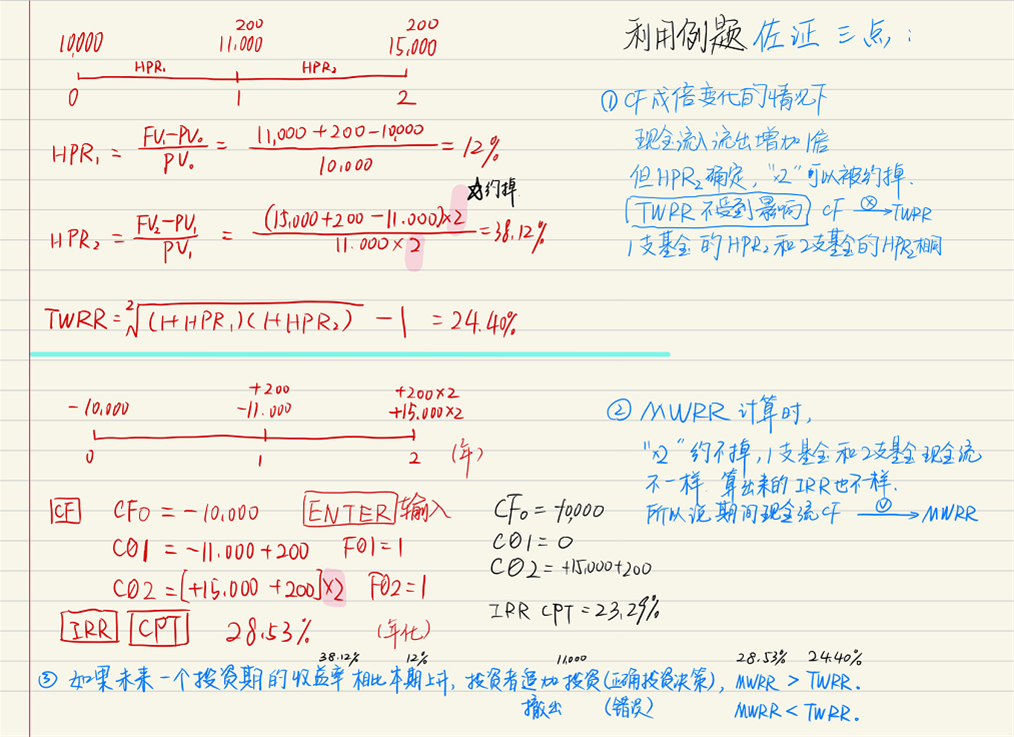 10,000
200
11,000
200
15,000
HPR₁
HPR₂
0
1
2
HPR₁ = (FV₁-PV₀)/PV₀ = (11,000+200-10,000)/10,000 = 12%
约掉
HPR₂ = (FV₂-PV₁)/PV₁ = (15,000+200-11,000)×2/11,000×2 = 38.12%
TWRR = ²√(1+HPR₁)(1+HPR₂) - 1 = 24.40%
利用例题 佐证 三点:
① CF成倍变化的情况下
现金流入流出增加1倍
但HPR₂确定,"×2"可以被约掉.
TWRR不受到影响 CF ⓧ→ TWRR
1支基金的HPR₂和2支基金的HPR₂相同
-10,000
+200
-11,000
+200×2
+15,000×2
0
1
2
(年)
CF CF0 = -10,000 ENTER 输入
C01 = -11,000+200 F01=1
C02 = [+15,000+200]×2 F02=1
IRR CPT 28.53% (年化)
CF₀ = -10,000
C01 = 0
C02 = +15,000+200
IRR CPT = 23.29%
② MWRR 计算时,
"×2"约不掉,1支基金和2支基金现金流
不一样. 算出来的IRR也不一样.
所以说期间现金流CF ⓥ→ MWRR
38.12% 12% 11,000 28.53% 24.40%
③ 如果未来一个投资期的收益率相比本期上升,投资者追加投资(正确投资决策),MWRR > TWRR.
撤出 (错误) MWRR < TWRR.